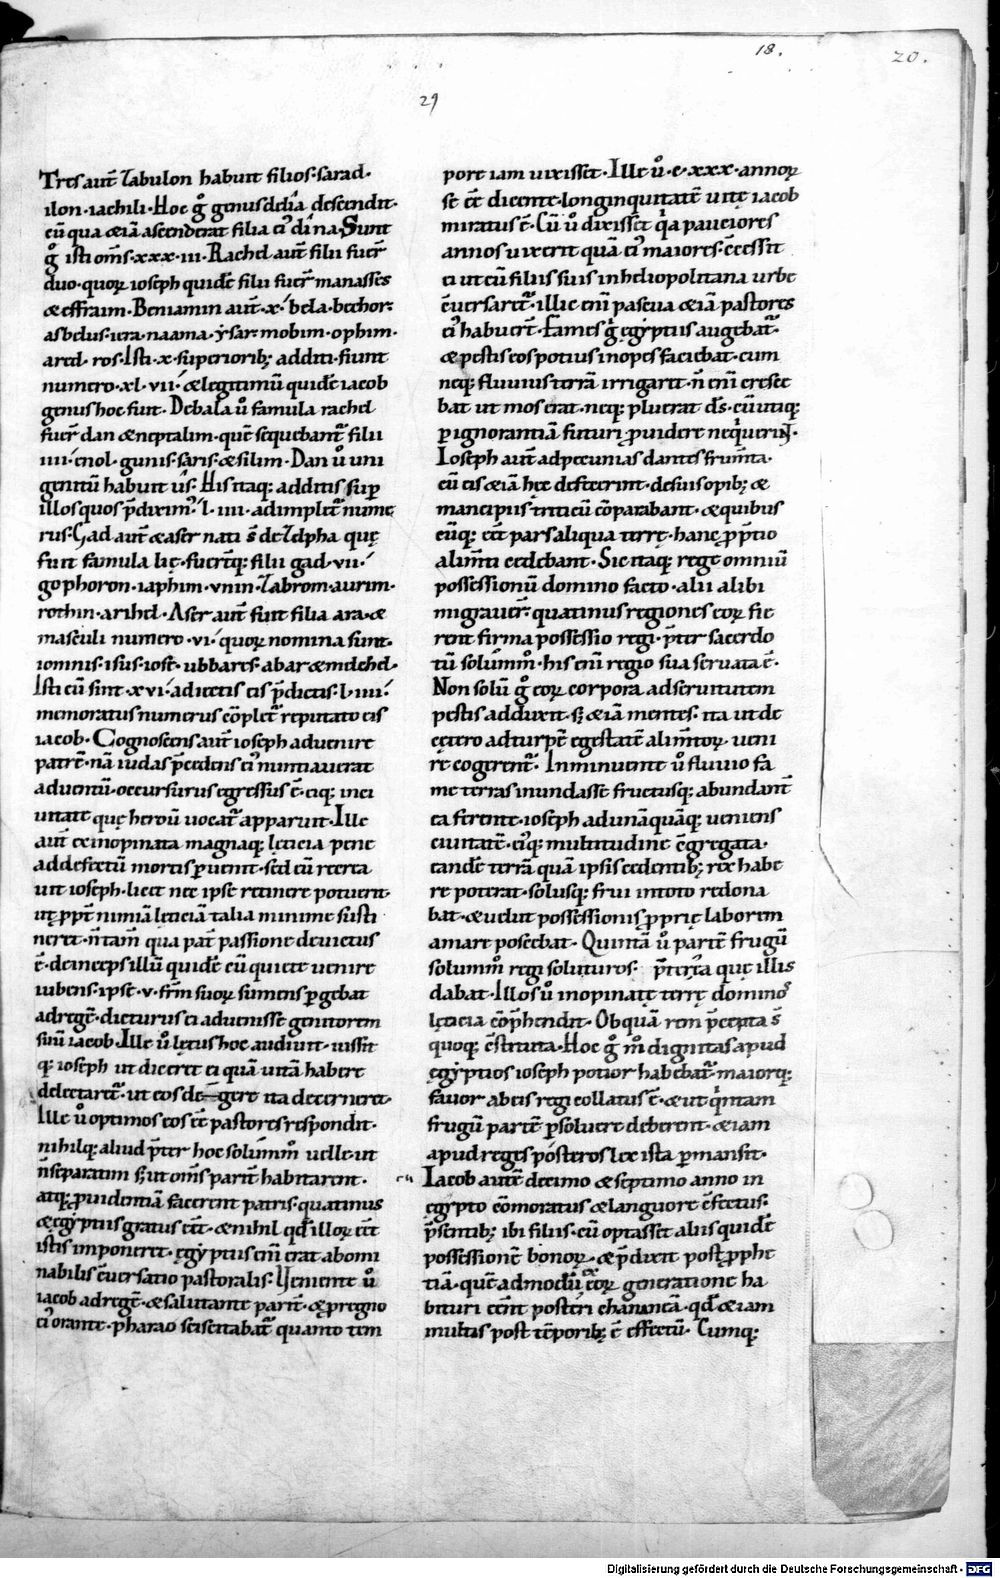 18.
20.
29
Tres aut̄ Zabulon habuit filios· sarad·
ilon· iachili· Hoc g̊ genus de lia descendit·
cū qua & iā ascenderat filia ei' dina· Sunt
g̊ isti om̄s· xxx· iii· Rachel aut̄ filii fuer̄
duo· quoꝝ ioseph quidē filii fuer̄ manasses
& effraim· Beniamin aut̄· x· bela· bechor·
asbelus· iera· naama· ysar· mobim· ophim·
ared· ros· Isti· x· superiorib; additi fiunt
numero· xl· vii· & legitimū quidē iacob
genus hoc fuit· De bala ů famula rachel
fuer̄ dan & neptalim· quē sequebant᷑ filii
iiii· enol· gunis· saris· & silim· Dan ů uni
genitū habuit ůs· His itaq; additis sup̄
illos quos p̄dixim᷒· l· iiii· adimplet᷑ nume
rus· Gad aut̄ & aser nati s̄ de Zelpha quę
fuit famula lię· fuer̄tq; filii gad· vii·
gophoron· iaphim· vnin· Zabrom· aurim·
rothin· arihel· Aser aut̄ fuit filia ara· &
masculi numero· vi· quoꝝ nomina sunt·
iomnis· isus· iosē· ubbares· abar & melchel·
Isti cū sint· xvi· adiectis eis p̄dictis· l· iiii·
memoratus numerus cōplet᷑ reputato eis
iacob· Cognoscens aut̄ ioseph aduenire
patrē· nā iudas p̄cedens ei' nuntiauerat
aduentū· occursurus egressus ē· eiq; in ei
uitate quę heroū uocat᷑ apparuit· Ille
aut̄ ex inopinata magnaq; lęticia pene
ad defectū mortis p̄uenit· sed eū recrea
uit ioseph· licet nec ipse retinere potuerit·
ut p̄pt̄ nimiā lęticiā talia minime susti
neret· n̄ tam̄ qua pat̄ passione deuictus
ē· deinceps illū quidē cū quiete uenire
iubens· ipse· v· frm̄ suoꝝ sumens p̄gebat
ad regē· dicturus ei aduenisse genitorem
suū iacob· Ille ů lętus hoc audiuit· iussit
q; ioseph ut diceret ei quā uitā habere
delectaret᷑· ut eos degere ita decerneret·
Ille ů optimos eos eē̄ pastores respondit·
nihilq; aliud p̄ter hoc solum̄m uelle· ut
n̄ separatim s; ut om̄s parit̄ habitarent·
atq; p̄uidentiā facerent patris· quatinus
& ęgyptiis gratus eēt· & nihil qd̄ illoꝝ eēt
istis imponeret· ęgyptiis eni erat abomi
nabilis ēuersatio pastoralis· Veniente ů
iacob ad regē· & salutante parit̄· & p̄ regno
ei' orante· pharao sciscitabat᷑ quanto tem
pore iam uixisset· Ille ů· c· xxx· annoꝝ
se eē dicente· longinquitatē uitę iacob
miratus ē· Cū ů dixisset q̇a pauciores
annos uixerit quā ei' maiores· cessit
ei ut cū filiis suis in heliopolitana urbe
ēuersaret᷑· illic eni pascua & iā pastores
ei' habuer̄t· Fames g̊ ęgyptiis augebat᷑·
& pestis eos potius inopes faciebat· cum
neq; fluuius terrā irrigaret· n̄ eni cresce
bat ut mos erat· neq; pluerat ds̄· cū utiq;
p̄ ignorantiā futuri p̄uidere nequerint·
Ioseph aut̄ ad pecunias dantes frum̄ta·
cū eis & iā hęc defecerint· de suis opib; &
mancipiis triticū cōparabant· & quibus
cūq; eēt pars aliqua terrę· hanc p̄ p̄tio
alim̄ti cedebant· Sic itaq; rege omniū
possessionū domino facto· alii alibi
migrauer̄· quatinus regiones eoꝝ fie
rent firma possessio regi· p̄ter sacerdo
tū solum̄m· his eni regio sua seruata ē·
Non solū g̊ eoꝝ corpora ad seruitutem
pestis adduxit· s; & iā mentes· ita ut de
cętero ad turpē egestatē alim̄toꝝ ueni
re cogerent᷑· Inminuente ů fluuio fa
me terras inundasse fructusq; abundant̄
ea ferente· ioseph ad unāquāq; ueniens
ciuitatē· ei'q; multitudine ēgregata·
eandē terrā quā ipsi cedentib; rex habe
re poterat· solusq; frui in toto redona
bat· & uelut possessionis p̄prię laborem
amare poscebat· Quintā ů partē frugū
solum̄m regi soluturos· p̄ter ea quę illis
dabat· Illos ů inopinatę terrę dominos
lęticia cōp̄hendit· Ob quā rem p̄cepta s̄
quoq; ēstituta· Hoc g̊ m̊ dignitas apud
ęgyptios ioseph potior habebat᷑· maiorq;
fauor ab eis regi collatus ē· & ut q̇ntam
frugū partē p̄soluere deberent· & iam
apud reges posteros lex ista p̄mansit·
Iacob autē decimo & septimo anno in
ęgypto cōmoratus & languore ēfectus·
p̄sentib; ibi filiis· cū optasset aliis quidē
possessionē bonoꝝ· & p̄dixit post p̄phe
tiā· quē admodū ex eoꝝ generatione ha
bituri eēnt posteri chananeā· qd̄ & iam
multis post tēporib; ē effectū· Cumq;
Digitalisierung gefördert durch die Deutsche Forschungsgemeinschaft - DFG